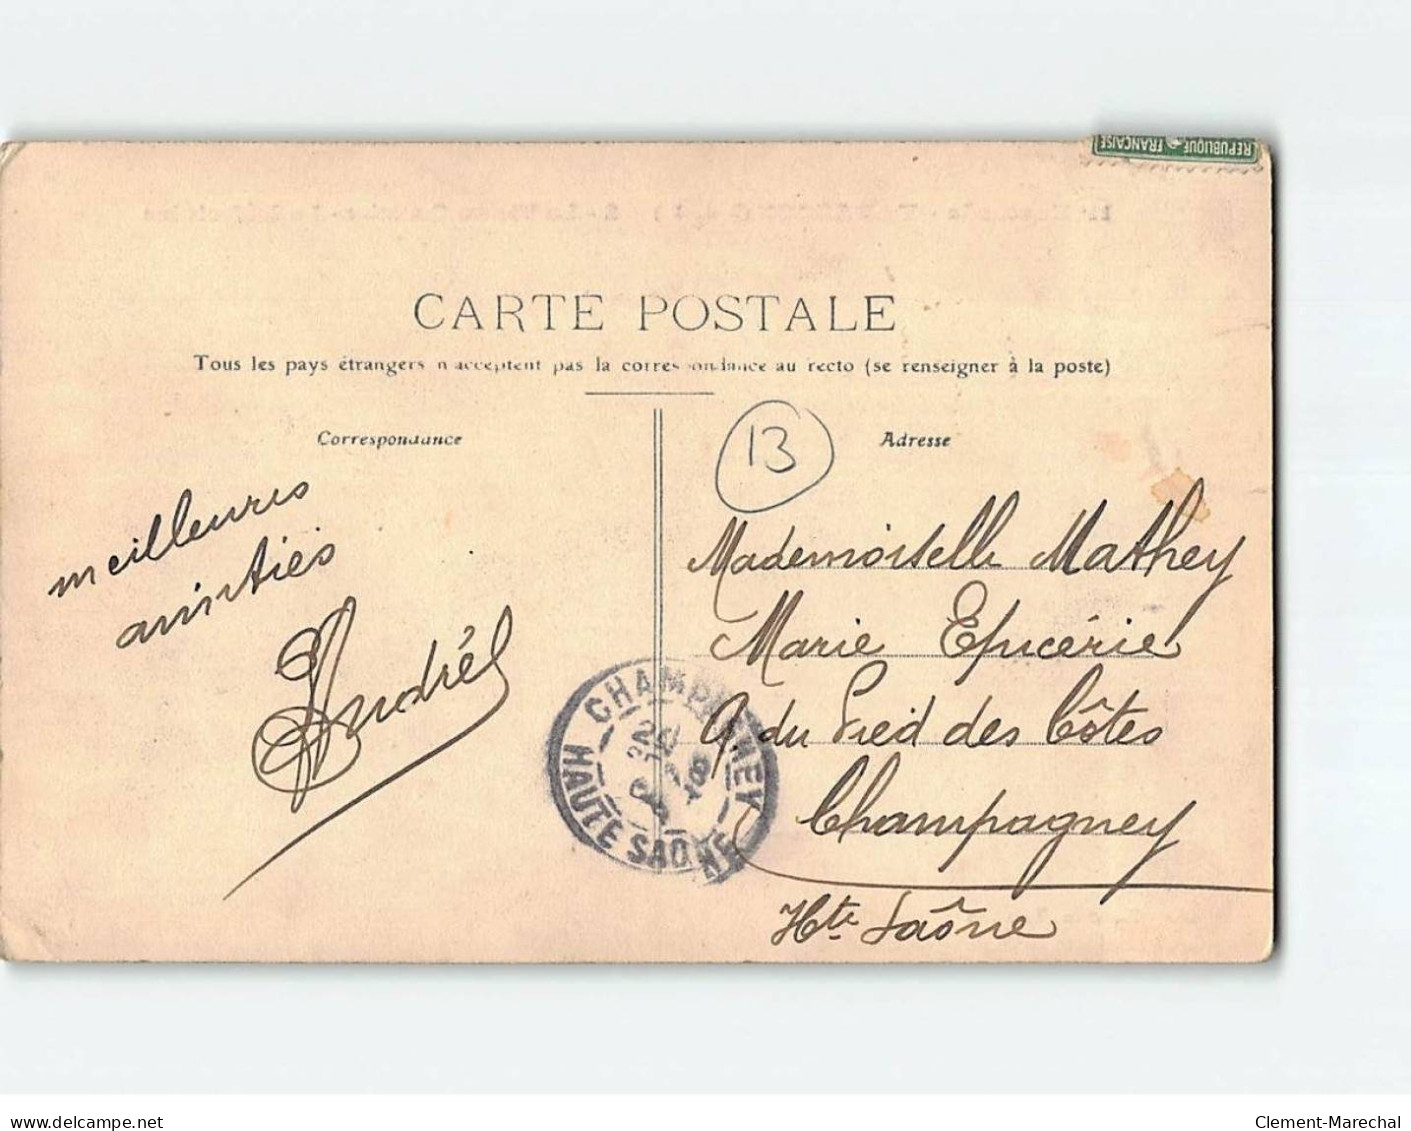 RÉPUBLIQUE FRANÇAISE
CARTE POSTALE
Tous les pays étrangers n'acceptent pas la correspondance au recto (se renseigner à la poste)
Correspondance
13
Adresse
meilleures
amitiés
Mademoiselle Mathey
Marie Epicérie
q. du Pied des Côtes
Champagney
Hte Saône
CHAMPAGNEY
HAUTE SAONE
www.delcampe.net
Clement-Marechal